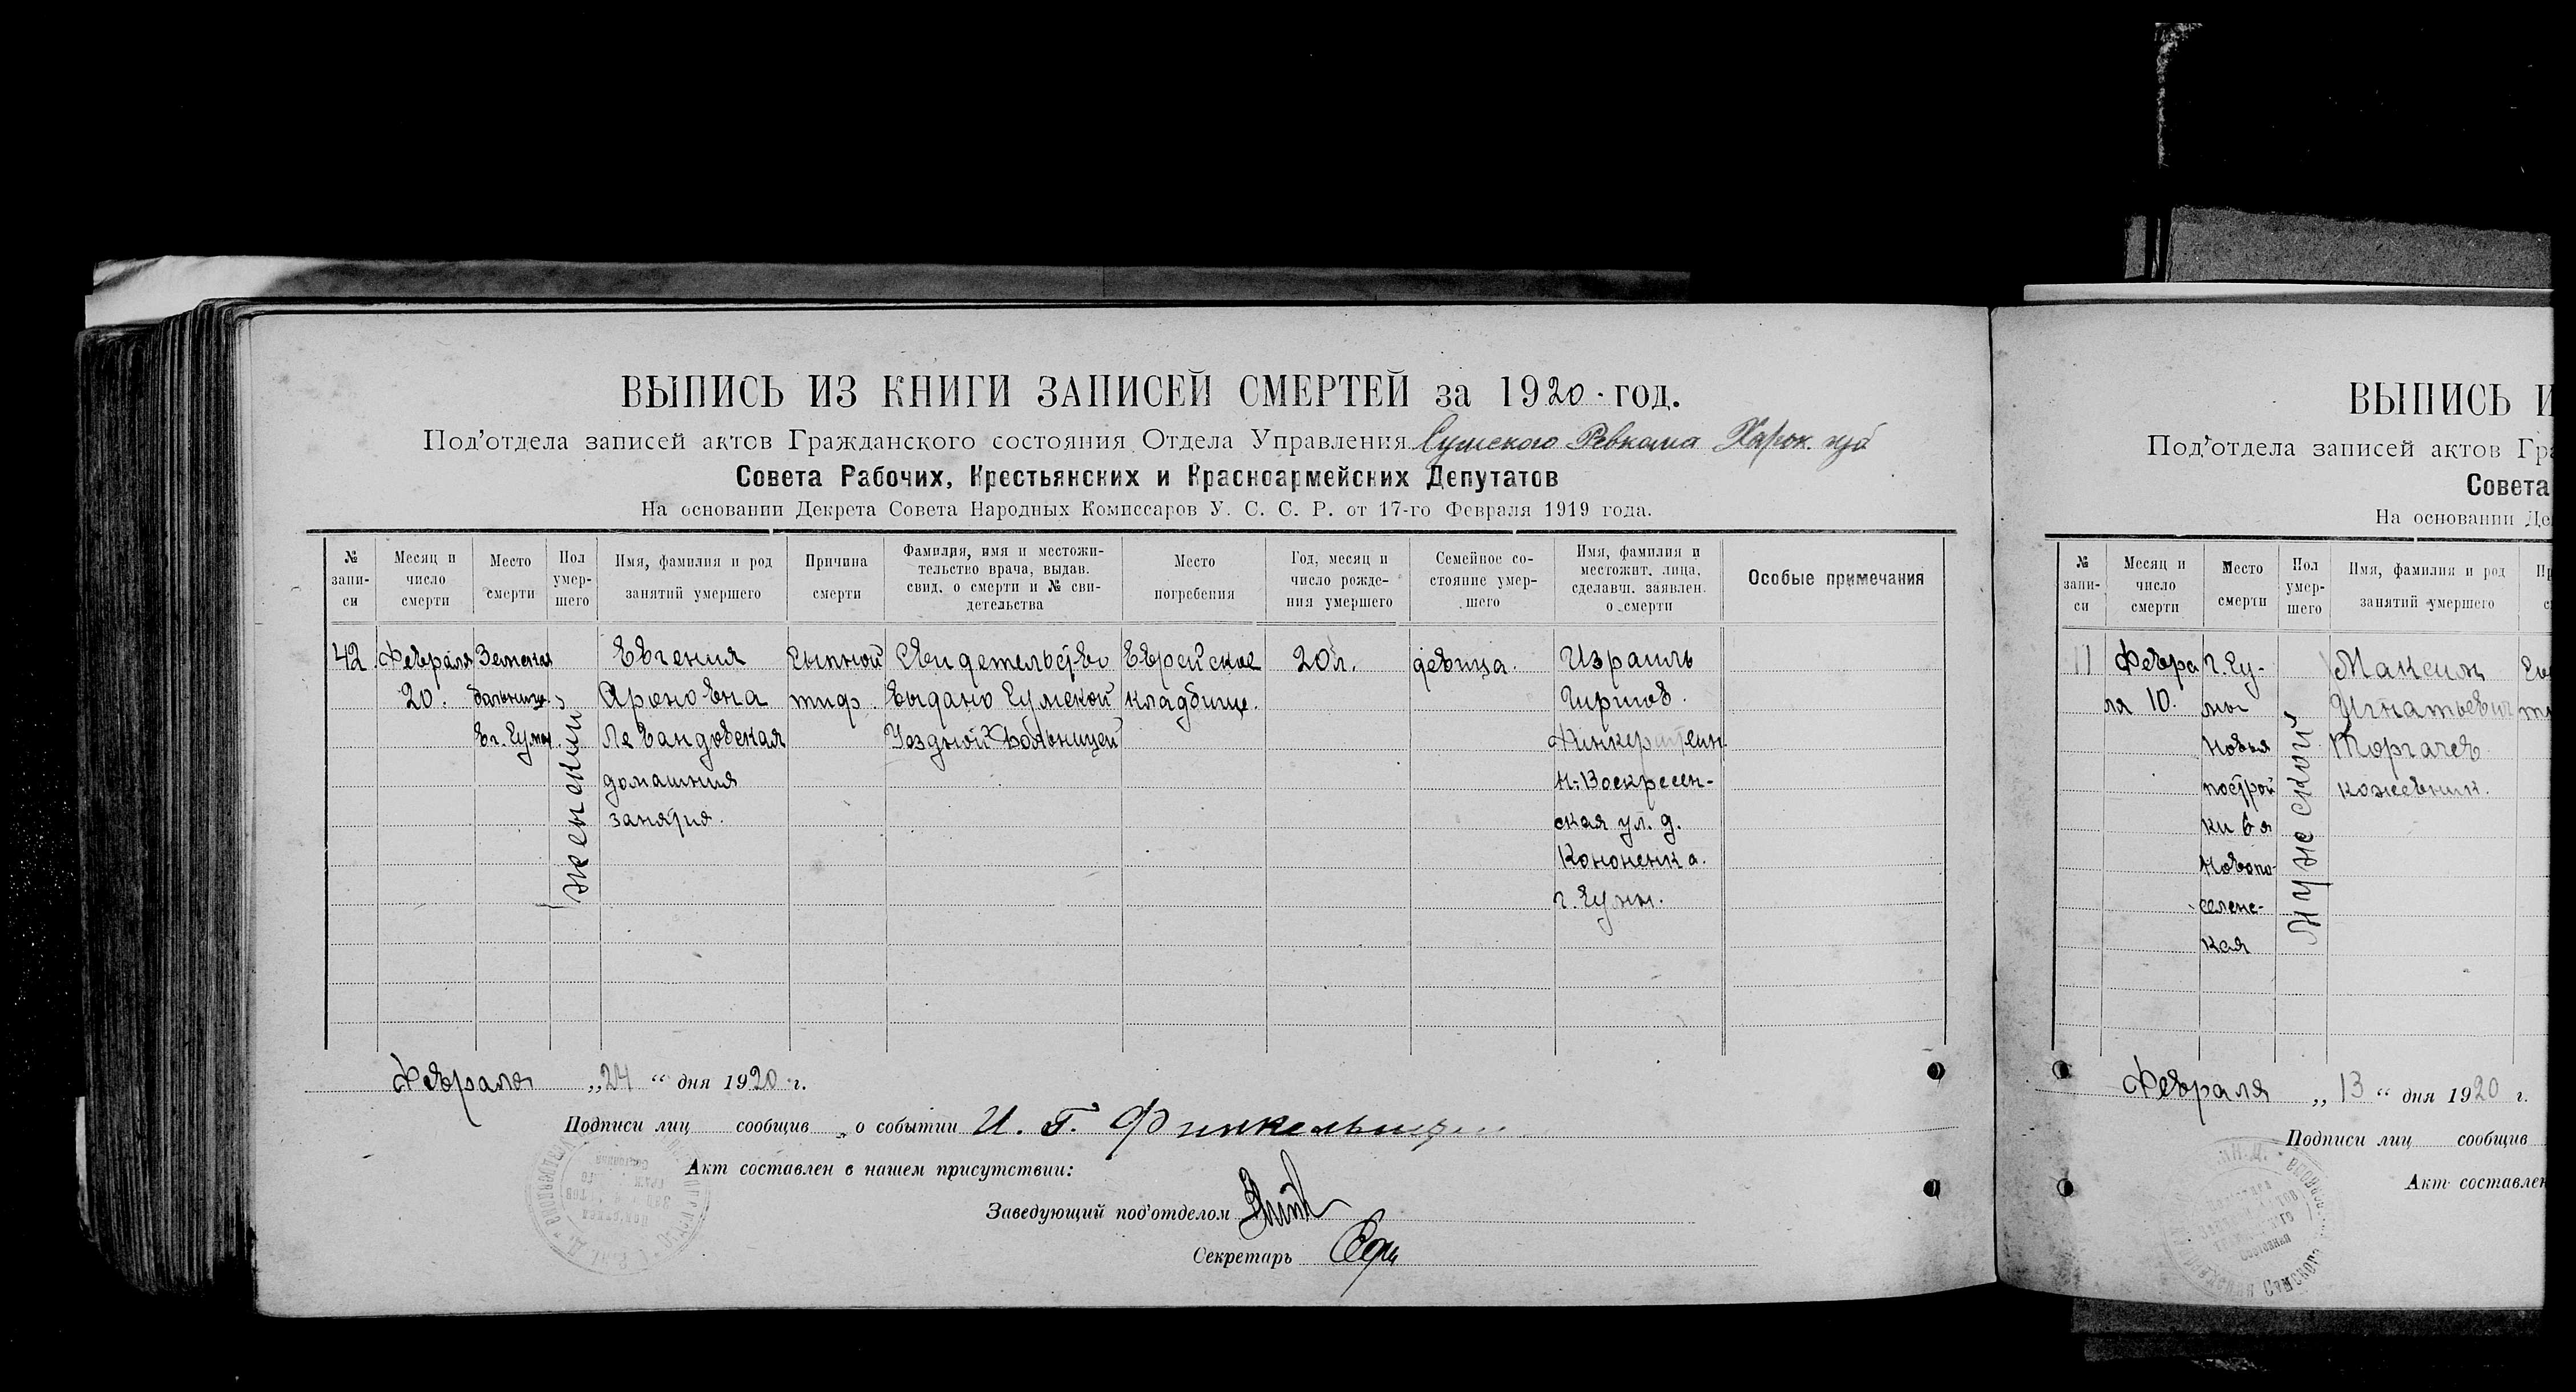 ВЫПИСЬ ИЗ КНИГИ ЗАПИСЕЙ СМЕРТЕЙ за 1920 год.
Под'отдела записей актов Гражданского состояния Отдела Управления Сумского Ревкома Харок. губ
Совета Рабочих, Крестьянских и Красноармейских Депутатов
На основании Декрета Совета Народных Комиссаров У. С. С. Р. от 17-го Февраля 1919 года.
№ запи-
си
Месяц и
число
смерти
Место
смерти
Пол
умер-
шего
Имя, фамилия и род
занятий умершего
Причина
смерти
Фамилия, имя и местожи-
тельство врача, выдав.
свид. о смерти и № сви-
детельства
Место
погребения
Год, месяц и
число рожде-
ния умершего
Семейное со-
стояние умер-
шего
Имя, фамилия и
местожит. лица,
сделавш. заявлен.
о смерти
Особые примечания
42
Февраля
20.
Земская
больница
в г. Сумы
женский
Евгения
Ароновна
Левандовская
домашния
занятия.
Сыпной
тиф.
Свидетельство
выдано Сумской
Уездной Больницей
Еврейское
кладбище.
20 л.
девица.
Израиль
Гиршов.
Финкерштейн
Н-Воскресен-
ская ул. д.
Кононенка.
г. Сумы.
Февраля „24“ дня 1920 г.
Подписи лиц сообщив „ о событии И. Г. Финкельштейн
Акт составлен в нашем присутствии:
Заведующий под'отделом
Секретарь
ВЫПИСЬ И
Под'отдела записей актов Гра
Совета
На основании Де
№
запи-
си
Месяц и
число
смерти
Место
смерти
Пол
умер-
шего
Имя, фамилия и род
занятий умершего
11
Февра
ля 10.
г. Су-
мы
Новыя
построй
ки 6 я
Новопо-
селенс-
кая
Мужской
Максим
Игнатьевич
Торгачев
кожевник.
Февраля „13“ дня 1920 г.
Подписи лиц сообщив
Акт составлен